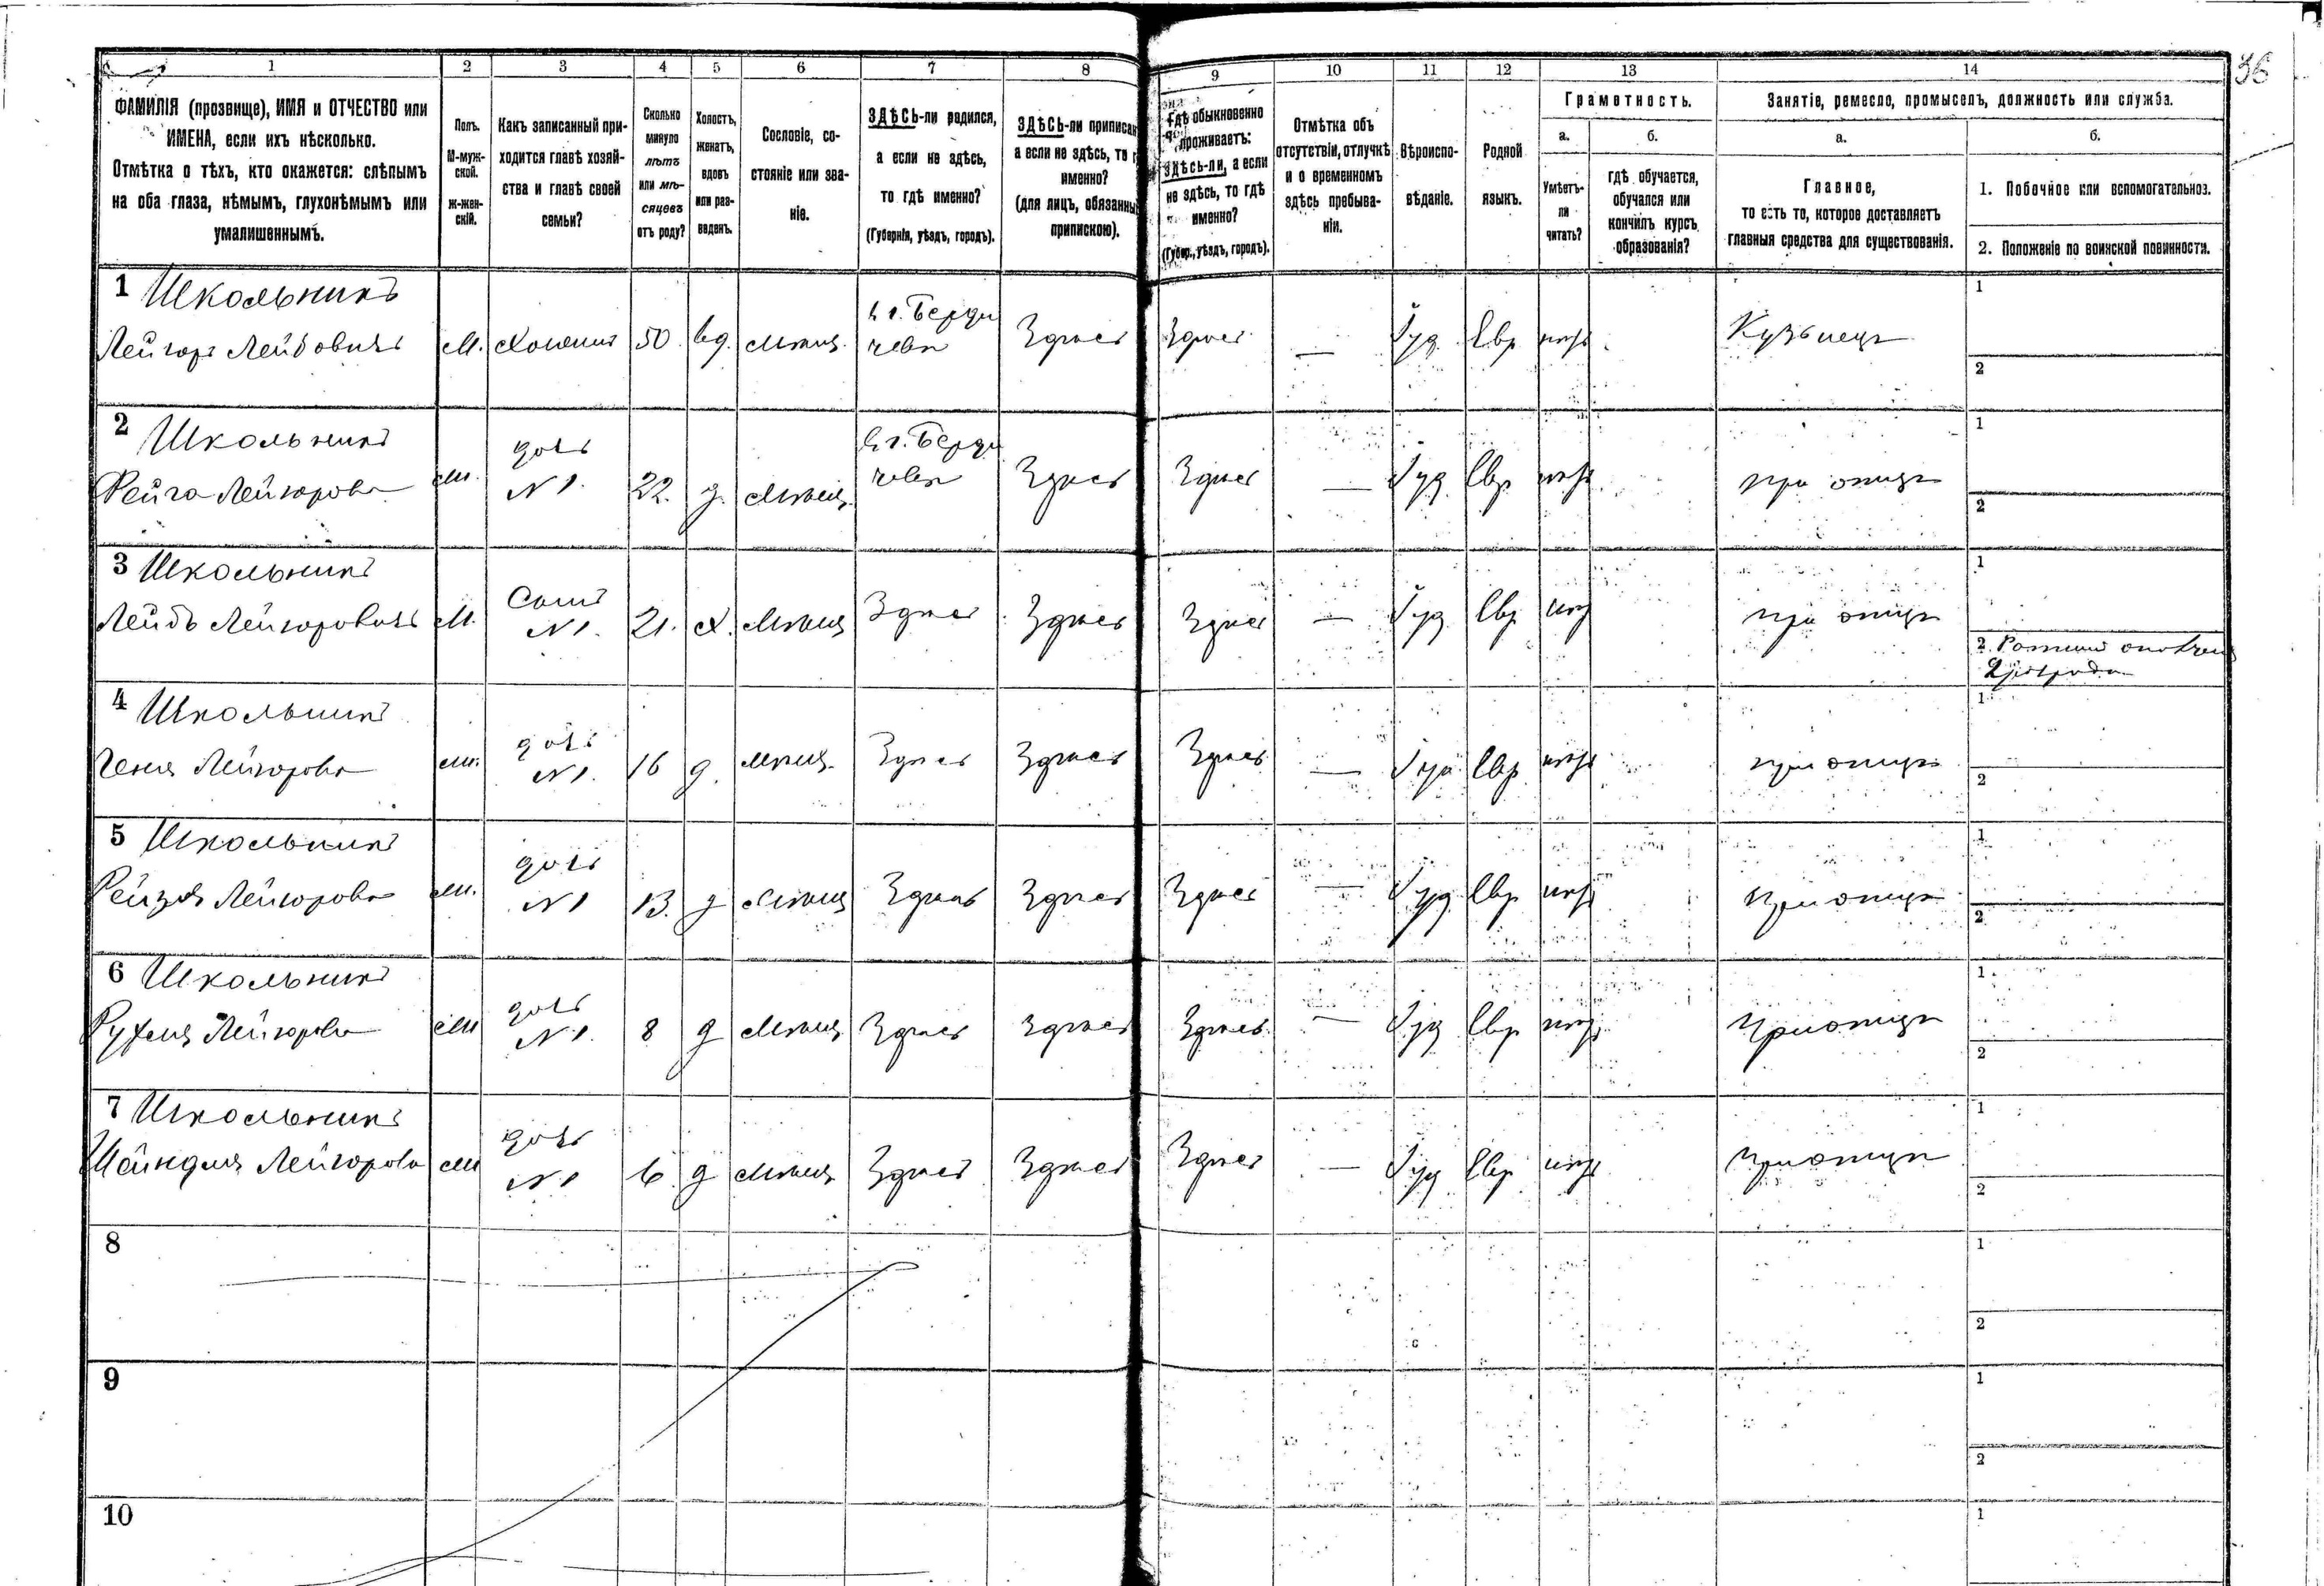 36
1 2 3 4 5 6 7 8 9 10 11 12 13 14
ФАМИЛІЯ (прозвище), ИМЯ и ОТЧЕСТВО или
ИМЕНА, если ихъ нѣсколько.
Отмѣтка о тѣхъ, кто окажется: слѣпымъ
на оба глаза, нѣмымъ, глухонѣмымъ или
умалишеннымъ.
Полъ.
М-муж-
ской.
ж-жен-
скій.
Какъ записанный при-
ходится главѣ хозяй-
ства и главѣ своей
семьи?
Сколько
минуло
лѣтъ
или мѣ-
сяцевъ
отъ роду?
Холостъ,
женатъ,
вдовъ
или раз-
веденъ.
Сословіе, со-
стояніе или зва-
ніе.
ЗДѢСЬ-ли родился,
а если не здѣсь,
то гдѣ именно?
(Губернія, уѣздъ, городъ).
ЗДѢСЬ-ли приписан
а если не здѣсь, то г
именно?
(для лицъ, обязанны
припискою).
Гдѣ обыкновенно
проживаетъ:
ЗДѢСЬ-ли, а если
не здѣсь, то гдѣ
именно?
(Губер., уѣздъ, городъ).
Отмѣтка объ
отсутствіи, отлучкѣ
и о временномъ
здѣсь пребыва-
ніи.
Вѣроиспо-
вѣданіе.
Родной
языкъ.
Грамотность.
а.
Умѣетъ-
ли
читать?
б.
гдѣ обучается,
обучался или
кончилъ курсъ
образованія?
Занятіе, ремесло, промыселъ, должность или служба.
а.
Главное,
то есть то, которое доставляетъ
главныя средства для существованія.
б.
1. Побочное или вспомогательноз.
2. Положеніе по воинской повинности.
1 Школьникъ
Лейзоръ Лейбовичъ М. Хозяинъ 50. вд. Мѣщ. В г. Берди
чевѣ Здѣсь Здѣсь — Іуд. Евр нѣтъ Кузнецъ
1
2
2 Школьникъ
Лейзорова ж. дочь
N 1. 22. д. Мѣщ. В г. Берди
чевѣ Здѣсь Здѣсь — Іуд. Евр. нѣтъ при отцѣ
1
2
3 Школьникъ
Лейбъ Лейзоровичъ М. Сынъ
N 1. 21. х. Мѣщ Здѣсь Здѣсь Здѣсь — Іуд Евр нѣтъ при отцѣ
1
2. Ратникъ ополчен
2 разряда
4 Школьникъ
Геня Лейзорова ж. дочь
N 1. 16 д. Мѣщ. Здѣсь Здѣсь Здѣсь — Іуд Евр. нѣтъ при отцѣ
1
2
5 Школьникъ
Рейзя Лейзорова ж. дочь
N 1 13. д Мѣщ Здѣсь Здѣсь Здѣсь — Іуд Евр нѣтъ при отцѣ
1
2
6 Школьникъ
Рухля Лейзорова ж дочь
N 1. 8 д Мѣщ Здѣсь Здѣсь Здѣсь — Іуд Евр. нѣтъ при отцѣ
1
2
7 Школьникъ
Шейндля Лейзорова ж дочь
N 1 6 д Мѣщ Здѣсь Здѣсь Здѣсь — Іуд Евр. нѣтъ при отцѣ
1
2
8
1
2
9
1
2
10
1